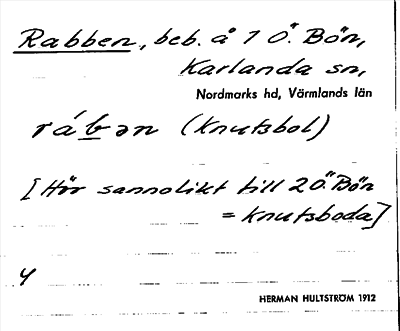 Rabben, beb. å 1 Ö. Bön,
Karlanda sn,
Nordmarks hd, Värmlands län
rábən (Knutsbol)
[Hör sannolikt till 2 Ö. Bön
= Knutsboda]
4
HERMAN HULTSTRÖM 1912